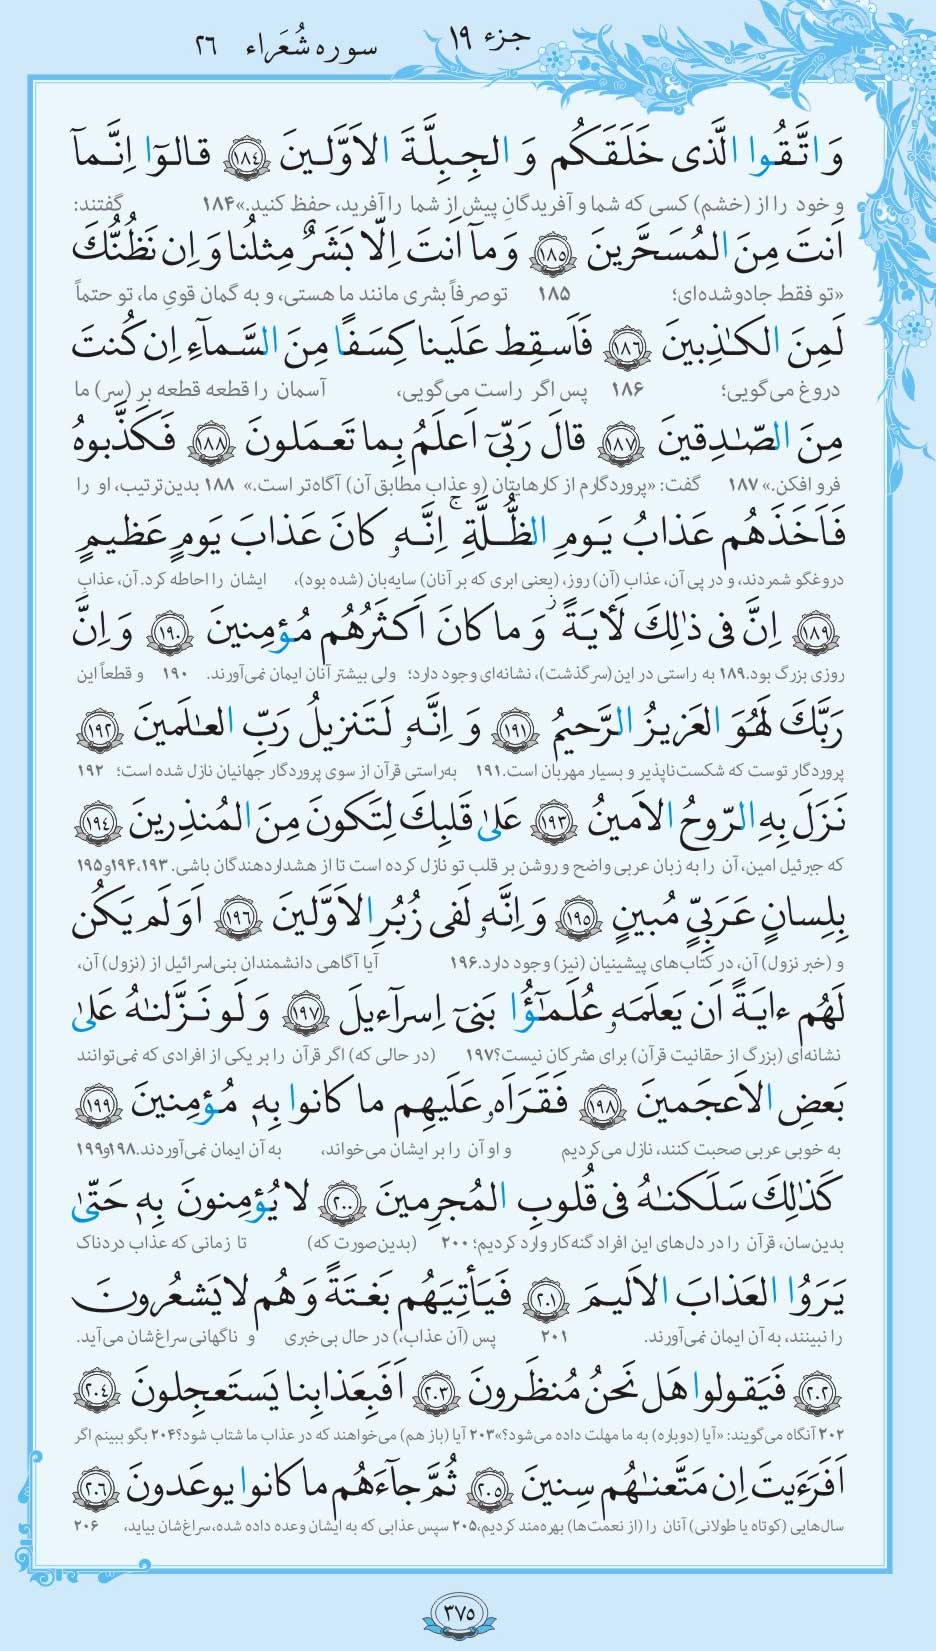 جزء ۱۹ سوره شُعَراء ۲۶
وَ اتَّقُوا الَّذی خَلَقَکُم وَ الجِبِلَّةَ الاَوَّلینَ ﴿۱۸۴﴾ قالوٓا اِنَّمآ
و خود را از (خشم) کسی که شما و آفریدگانِ پیش از شما را آفرید، حفظ کنید.» ۱۸۴ گفتند:
اَنتَ مِنَ المُسَحَّرینَ ﴿۱۸۵﴾ وَ مآ اَنتَ اِلّا بَشَرٌ مِثلُنا وَ اِن نَظُنُّکَ
«تو فقط جادوشده‌ای؛ ۱۸۵ تو صرفاً بشری مانند ما هستی، و به گمان قویِ ما، تو حتماً
لَمِنَ الکـٰذِبینَ ﴿۱۸۶﴾ فَاَسقِط عَلَینا کِسَفًا مِنَ السَّمآءِ اِن کُنتَ
دروغ می‌گویی؛ ۱۸۶ پس اگر راست می‌گویی، آسمان را قطعه قطعه بر (سر) ما
مِنَ الصّـٰدِقینَ ﴿۱۸۷﴾ قالَ رَبّیٓ اَعلَمُ بِما تَعمَلونَ ﴿۱۸۸﴾ فَکَذَّبوهُ
فرو افکن.» ۱۸۷ گفت: «پروردگارم از کارهایتان (و عذاب مطابق آن) آگاه‌تر است.» ۱۸۸ بدین‌ترتیب، او را
فَاَخَذَهُم عَذابُ یَومِ الظُّلَّةِۚ اِنَّهٗ کانَ عَذابَ یَومٍ عَظیمٍ
دروغگو شمردند، و در پی آن، عذاب (آن) روز، (یعنی ابری که بر آنان) سایه‌بان (شده بود)، ایشان را احاطه کرد. آن، عذابِ
﴿۱۸۹﴾ اِنَّ فی ذٰلِکَ لَـٔایَةًؗ وَ ما کانَ اَکثَرُهُم مُؤمِنینَ ﴿۱۹۰﴾ وَ اِنَّ
روزی بزرگ بود. ۱۸۹ به راستی در این (سرگذشت)، نشانه‌ای وجود دارد؛ ولی بیشتر آنان ایمان نمی‌آورند. ۱۹۰ و قطعاً این
رَبَّکَ لَهُوَ العَزیزُ الرَّحیمُ ﴿۱۹۱﴾ وَ اِنَّهٗ لَتَنزیلُ رَبِّ العـٰلَمینَ ﴿۱۹۲﴾
پروردگار توست که شکست‌ناپذیر و بسیار مهربان است. ۱۹۱ به‌راستی قرآن از سوی پروردگار جهانیان نازل شده است؛ ۱۹۲
نَزَلَ بِهِ الرّوحُ الاَمینُ ﴿۱۹۳﴾ عَلیٰ قَلبِکَ لِتَکونَ مِنَ المُنذِرینَ ﴿۱۹۴﴾
که جبرئیل امین، آن را به زبان عربی واضح و روشن بر قلب تو نازل کرده است تا از هشداردهندگان باشی. ۱۹۳، ۱۹۴ و ۱۹۵
بِلِسانٍ عَرَبِیٍّ مُبینٍ ﴿۱۹۵﴾ وَ اِنَّهٗ لَفی زُبُرِ الاَوَّلینَ ﴿۱۹۶﴾ اَوَ لَم یَکُن
و (خبر نزول) آن، در کتاب‌های پیشینیان (نیز) وجود دارد. ۱۹۶ آیا آگاهی دانشمندان بنی‌اسرائیل از (نزول) آن،
لَهُم ءایَةً اَن یَعلَمَهٗ عُلَمـٰٓؤُا بَنیٓ اِسرآءیلَ ﴿۱۹۷﴾ وَ لَو نَزَّلنـٰهُ عَلیٰ
نشانه‌ای (بزرگ از حقانیت قرآن) برای مشرکان نیست؟ ۱۹۷ (در حالی که) اگر قرآن را بر یکی از افرادی که نمی‌توانند
بَعضِ الاَعجَمینَ ﴿۱۹۸﴾ فَقَرَاَهٗ عَلَیهِم ما کانوا بِهٖ مُؤمِنینَ ﴿۱۹۹﴾
به خوبی عربی صحبت کنند، نازل می‌کردیم و او آن را بر ایشان می‌خواند، به آن ایمان نمی‌آوردند. ۱۹۸ و ۱۹۹
کَذٰلِکَ سَلَکنـٰهُ فی قُلوبِ المُجرِمینَ ﴿۲۰۰﴾ لا یُؤمِنونَ بِهٖ حَتّیٰ
بدین‌سان، قرآن را در دل‌های این افراد گنه‌کار وارد کردیم؛ ۲۰۰ (بدین‌صورت که) تا زمانی که عذاب دردناک
یَرَوُا العَذابَ الاَلیمَ ﴿۲۰۱﴾ فَیَأتِیَهُم بَغتَةً وَ هُم لا یَشعُرونَ
را نبینند، به آن ایمان نمی‌آورند. ۲۰۱ پس (آن عذاب،) در حال بی‌خبری و ناگهانی سراغ‌شان می‌آید.
﴿۲۰۲﴾ فَیَقولوا هَل نَحنُ مُنظَرونَ ﴿۲۰۳﴾ اَفَبِعَذابِنا یَستَعجِلونَ ﴿۲۰۴﴾
۲۰۲ آنگاه می‌گویند: «آیا (دوباره) به ما مهلت داده می‌شود؟» ۲۰۳ آیا (باز هم) می‌خواهند که در عذاب ما شتاب شود؟ ۲۰۴ بگو ببینم اگر
اَفَرَءَیتَ اِن مَتَّعنـٰهُم سِنینَ ﴿۲۰۵﴾ ثُمَّ جآءَهُم ما کانوا یوعَدونَ ﴿۲۰۶﴾
سال‌هایی (کوتاه یا طولانی) آنان را (از نعمت‌ها) بهره‌مند کردیم، ۲۰۵ سپس عذابی که به ایشان وعده داده شده، سراغ‌شان بیاید، ۲۰۶
۳۷۵